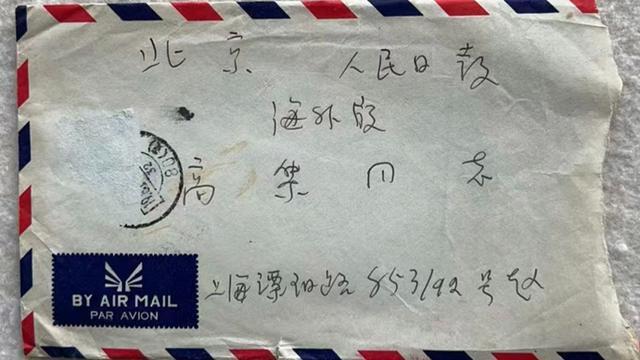 北京 人民日报
海外版
高集同志
BY AIR MAIL
PAR AVION
上海 853/92号赵